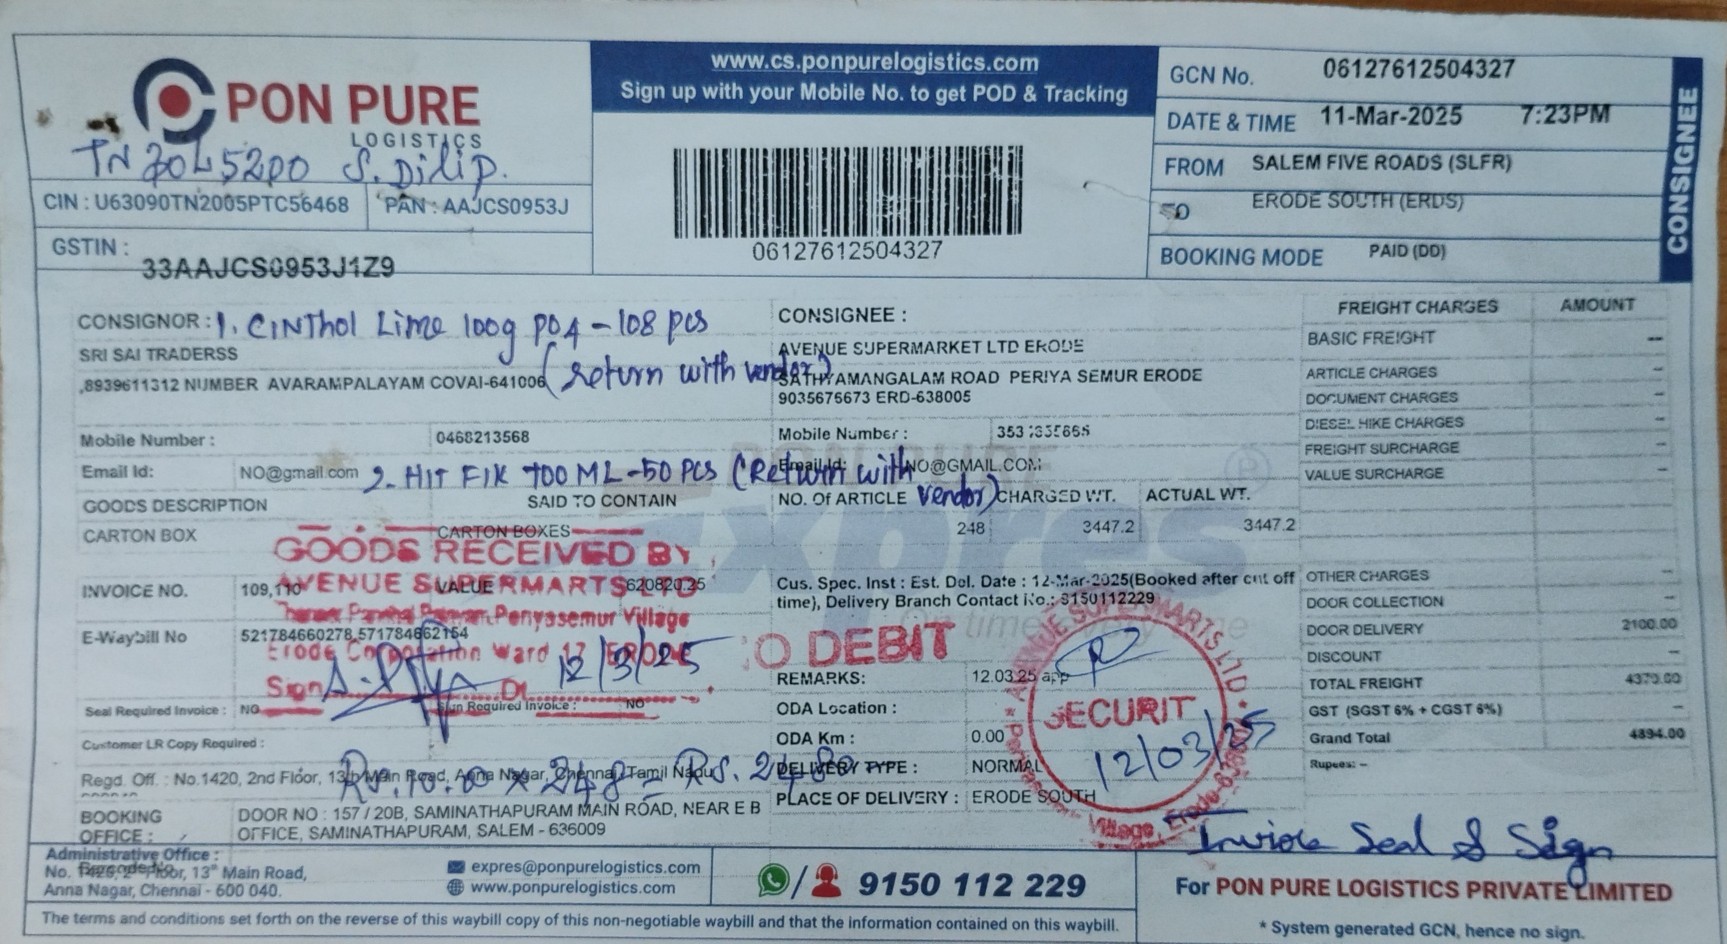 PON PURE
LOGISTICS
S. Dilip.
CIN : U63090TN2005PTC56468
PAN : AAJCS0953J
GSTIN :
33AAJCS0953J1Z9
www.cs.ponpurelogistics.com
Sign up with your Mobile No. to get POD & Tracking
06127612504327
GCN No. 06127612504327
DATE & TIME 11-Mar-2025 7:23PM
FROM SALEM FIVE ROADS (SLFR)
ERODE SOUTH (ERDS)
BOOKING MODE PAID (DD)
CONSIGNEE
CONSIGNOR : 1. CINThol Lime 100g PO4 - 108 PCS
SRI SAI TRADERSS
,8939611312 NUMBER AVARAMPALAYAM COVAI-641006
(return with vendor)
Mobile Number : 0468213568
Email Id: NO@gmail.com
2. HIT FIK 700 ML - 50 PCS (Return with vendor)
CONSIGNEE :
AVENUE SUPERMARKET LTD ERODE
SATHYAMANGALAM ROAD PERIYA SEMUR ERODE
9035676673 ERD-638005
Mobile Number :
Email Id: NO@GMAIL.COM
GOODS DESCRIPTION SAID TO CONTAIN NO. Of ARTICLE CHARGED WT. ACTUAL WT.
CARTON BOX CARTON BOXES 248 3447.2 3447.2
GOODS RECEIVED BY
AVENUE SUPERMARTS LTD
Penyasemur Village
Erode Corporation Ward 17 ERODE
Sign Dt. 12/3/25
INVOICE NO. 109,110 VALUE 620820.25
E-Waybill No 521784660278,571784662154
Seal Required Invoice : NO Sign Required Invoice : NO
Customer LR Copy Required :
Cus. Spec. Inst : Est. Del. Date : 12-Mar-2025(Booked after cut off
time), Delivery Branch Contact No.: 9150112229
DEBIT
REMARKS: 12.03.25 app
ODA Location :
ODA Km : 0.00
DELIVERY TYPE : NORMAL
PLACE OF DELIVERY : ERODE SOUTH
AVENUE SUPERMARTS LTD
SECURIT
12/03/25
Village, Erode
Regd. Off. : No.1420, 2nd Floor, 13th Main Road, Anna Nagar, Chennai, Tamil Nadu
Rs. 10.00 x 248 = Rs. 2480
BOOKING OFFICE : DOOR NO : 157 / 20B, SAMINATHAPURAM MAIN ROAD, NEAR E B
OFFICE, SAMINATHAPURAM, SALEM - 636009
FREIGHT CHARGES AMOUNT
BASIC FREIGHT --
ARTICLE CHARGES --
DOCUMENT CHARGES --
DIESEL HIKE CHARGES --
FREIGHT SURCHARGE --
VALUE SURCHARGE --
OTHER CHARGES --
DOOR COLLECTION --
DOOR DELIVERY 2100.00
DISCOUNT --
TOTAL FREIGHT
GST (SGST 6% + CGST 6%) --
Grand Total 4894.00
Rupees: --
Invoice Seal & Sign
Administrative Office :
No. 1420, 2nd Floor, 13th Main Road,
Anna Nagar, Chennai - 600 040.
expres@ponpurelogistics.com
www.ponpurelogistics.com
9150 112 229
For PON PURE LOGISTICS PRIVATE LIMITED
The terms and conditions set forth on the reverse of this waybill copy of this non-negotiable waybill and that the information contained on this waybill.
* System generated GCN, hence no sign.